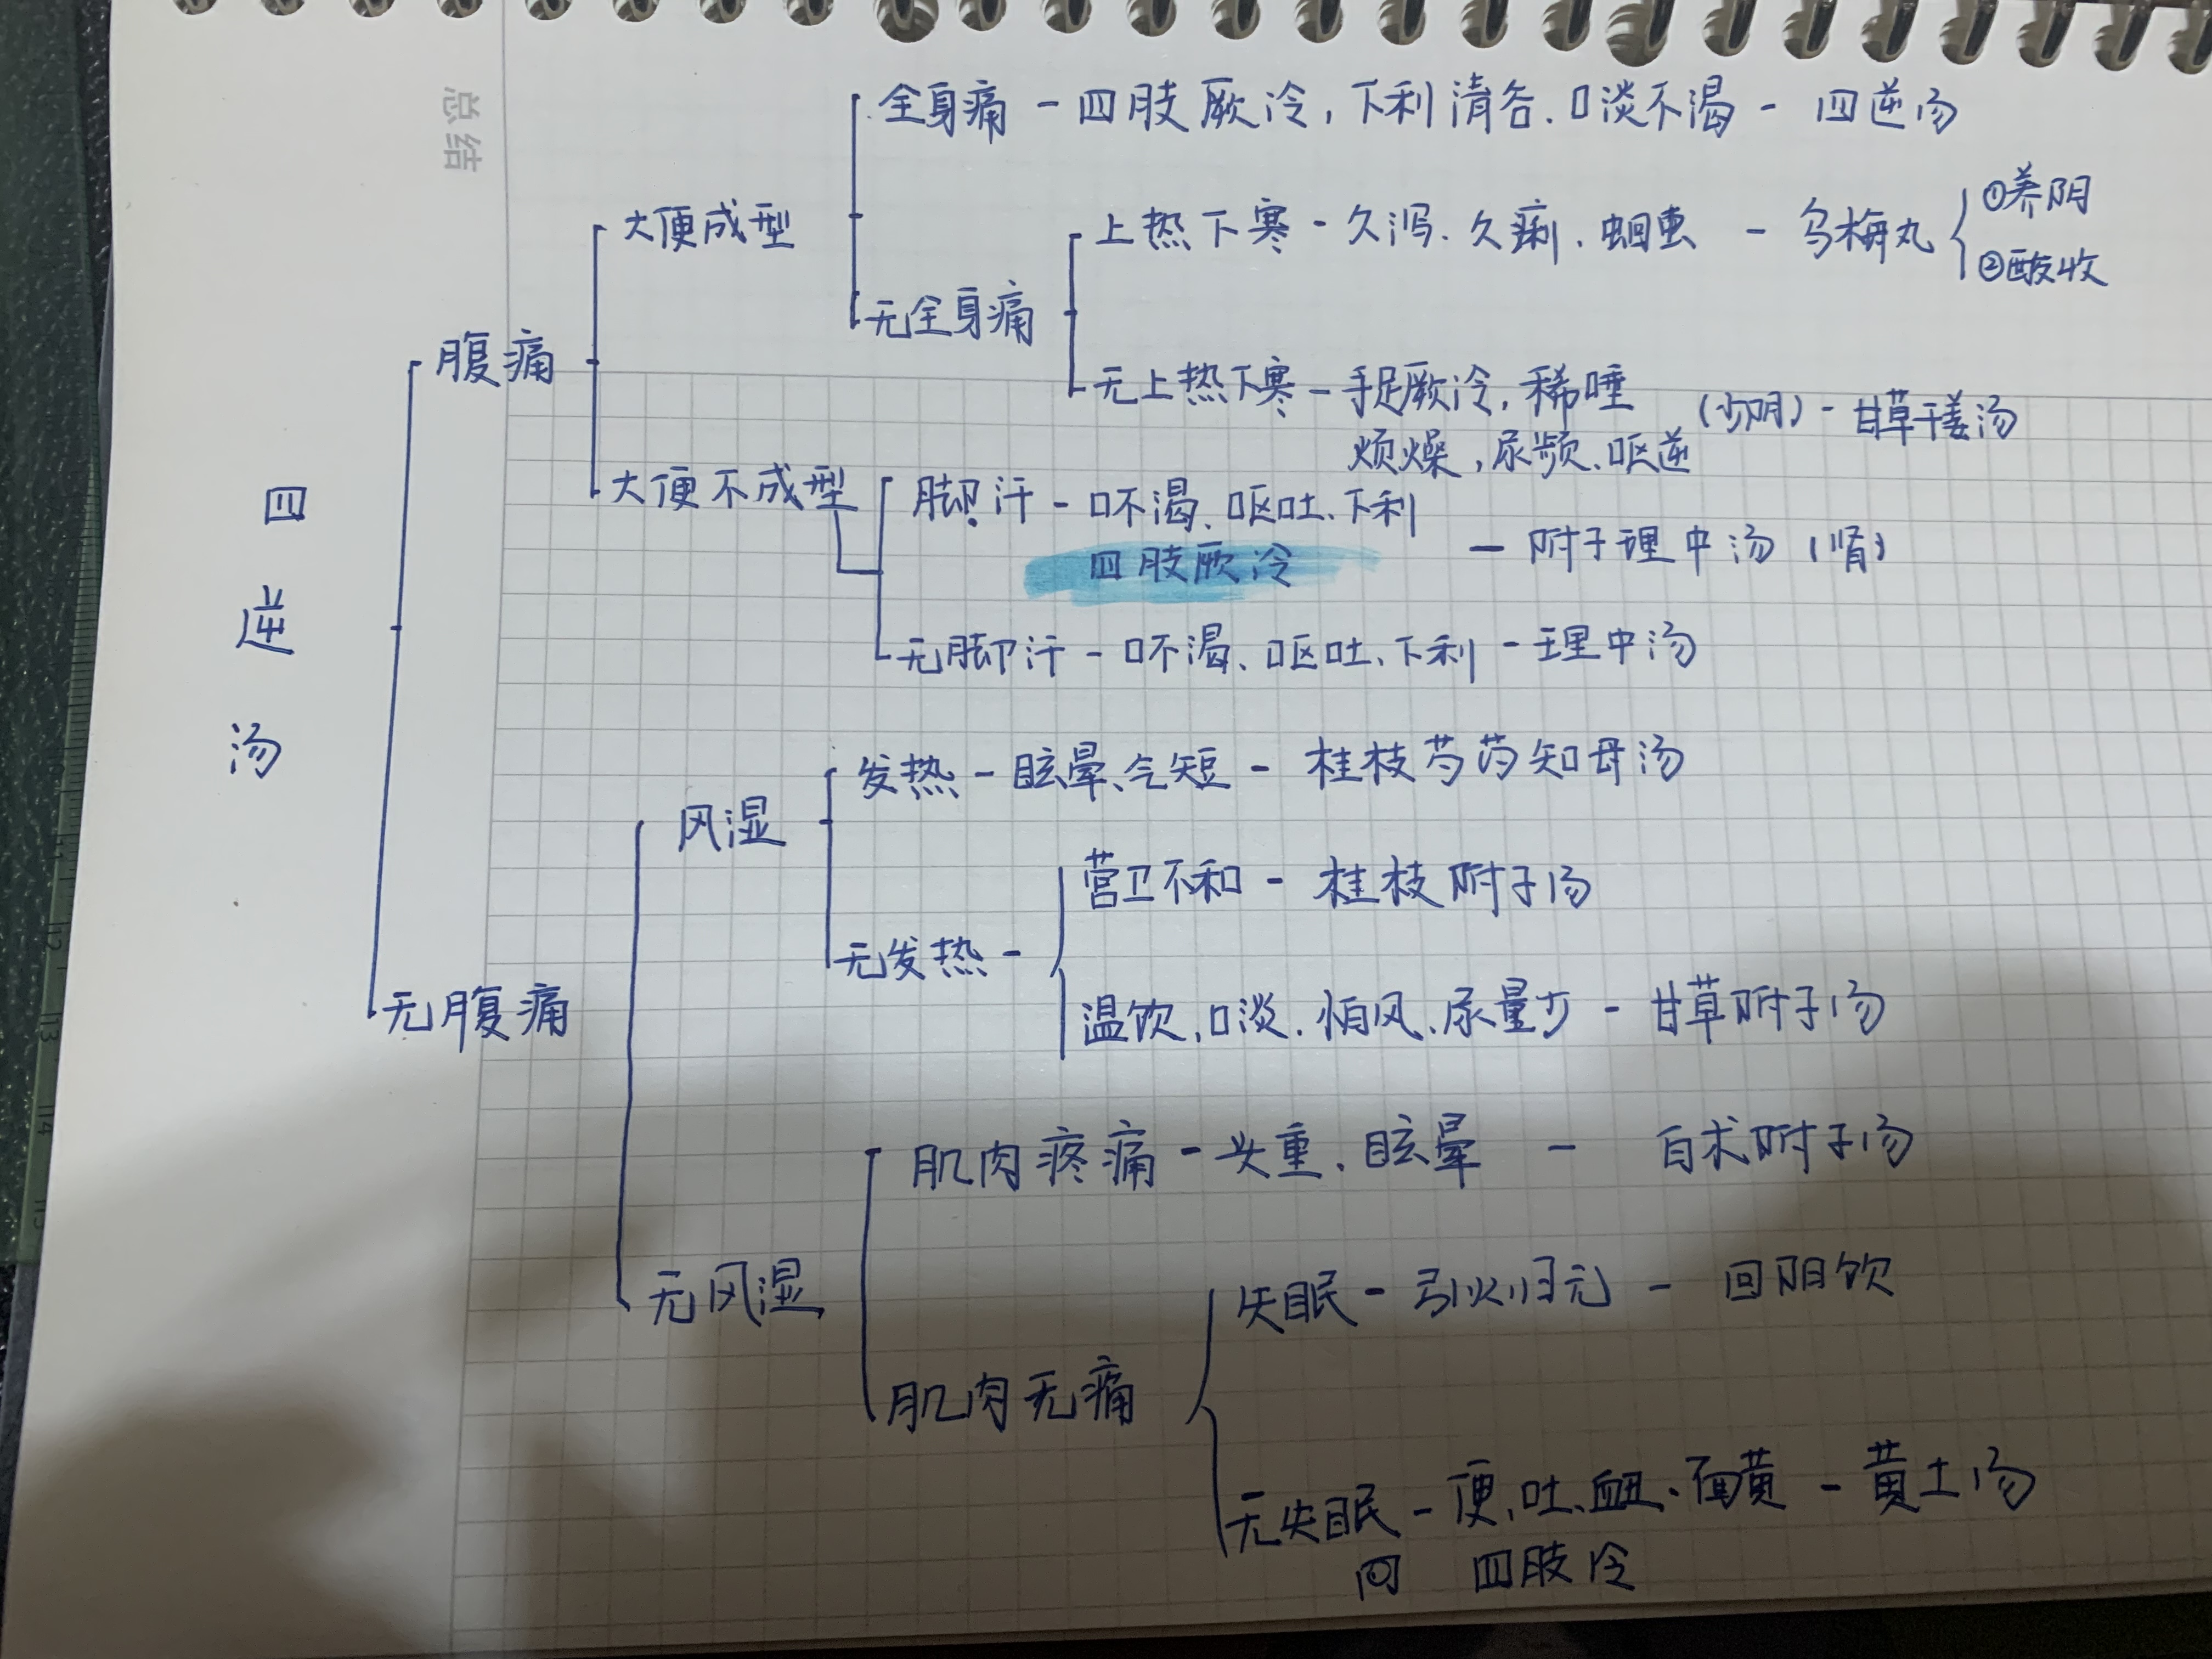 总结
四逆汤
腹痛
大便成型
全身痛 - 四肢厥冷,下利清谷、口淡不渴 - 四逆汤
无全身痛
上热下寒 - 久泻、久痢、蛔虫 - 乌梅丸
①养阴
②酸收
无上热下寒 - 手足厥冷,稀唾
烦燥,尿频、呕逆
(少阴) - 甘草干姜汤
大便不成型
脚汗 - 口不渴、呕吐、下利
四肢厥冷
- 附子理中汤(肾)
无脚汗 - 口不渴、呕吐、下利 - 理中汤
无腹痛
风湿
发热 - 眩晕、气短 - 桂枝芍药知母汤
无发热 -
营卫不和 - 桂枝附子汤
温饮、口淡、怕风、尿量少 - 甘草附子汤
无风湿
肌肉疼痛 - 头重、眩晕 - 白术附子汤
肌肉无痛
失眠 - 引火归元 - 回阴饮
无失眠 - 便、吐、衄、面黄 - 黄土汤
四肢冷